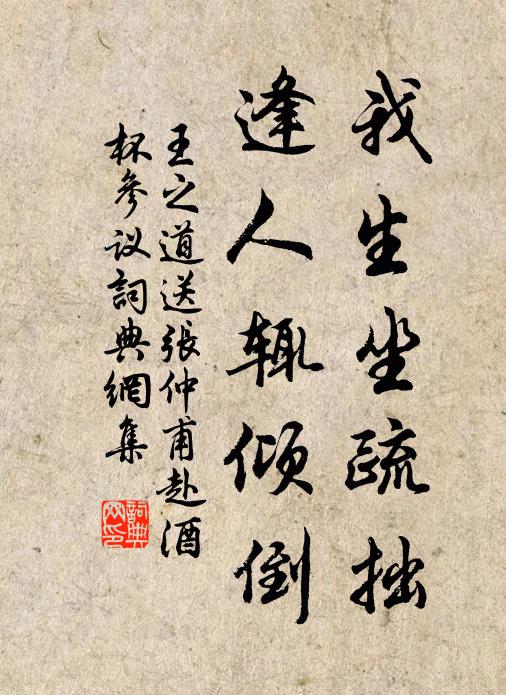 我生坐疏拙
逢人辄倾倒
王之道送張仲甫赴酒
杯参议詞典網集
詞典
网印